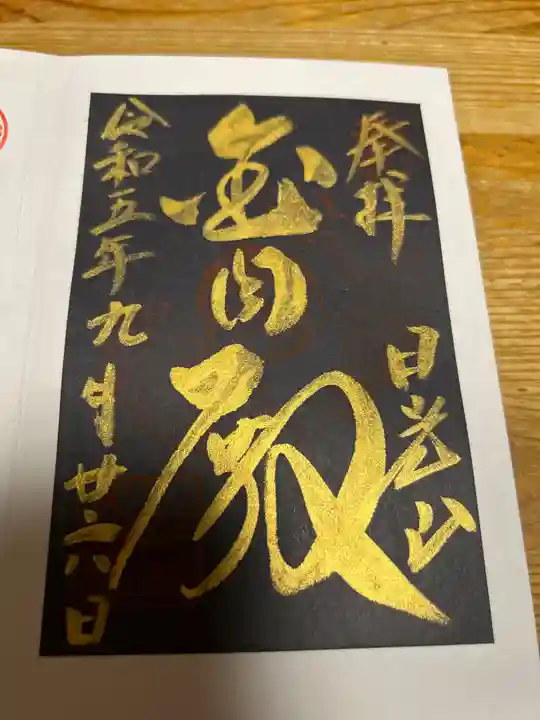 奉拝
日光山
金閣殿
令和五年九月廿六日